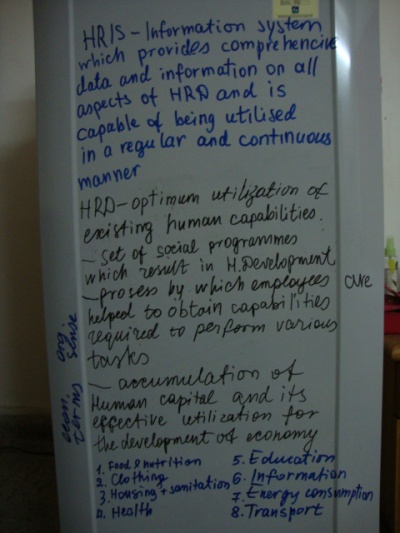 HRIS - Information system
which provides comprehencive
data and information on all
aspects of HRD and is
capable of being utilised
in a regular and continuous
manner
HRD - optimum utilization of
existing human capabilities.
- set of social programmes
which result in H.Development
- prosess by which employees are
helped to obtain capabilities
required to perform various
tasks
org. sense
- accumulation of
Human capital and its
effective utilization for
the development of economy
econ. terms
1. Food & nutrition
2. Clothing
3. Housing + sanitation
4. Health
5. Education
6. Information
7. Energy consumption
8. Transport